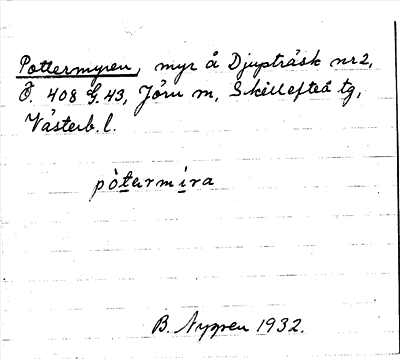 Pottermyren, myr å Djupträsk nr 2,
Ö. 408 G. 43, Jörn sn, Skellefteå tg,
Västerb. l.
pòtermı̀ra
B. Nygren 1932.